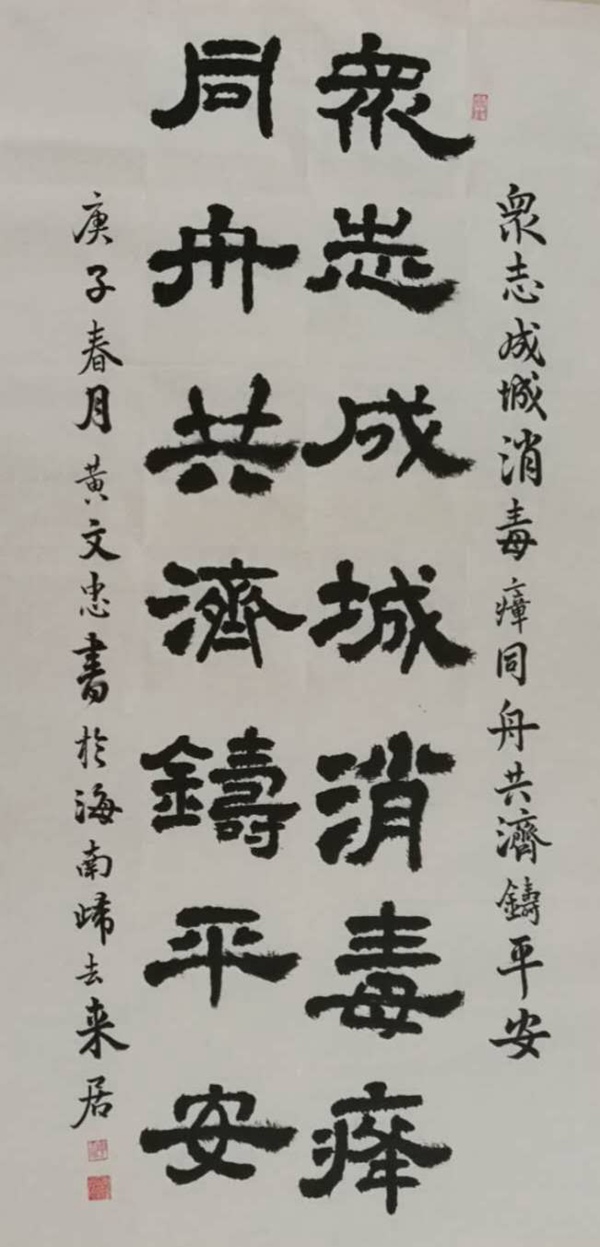 衆志成城消毒瘴同舟共濟鑄平安
衆志成城消毒瘴
同舟共濟鑄平安
庚子春月黄文忠書於海南歸去来居